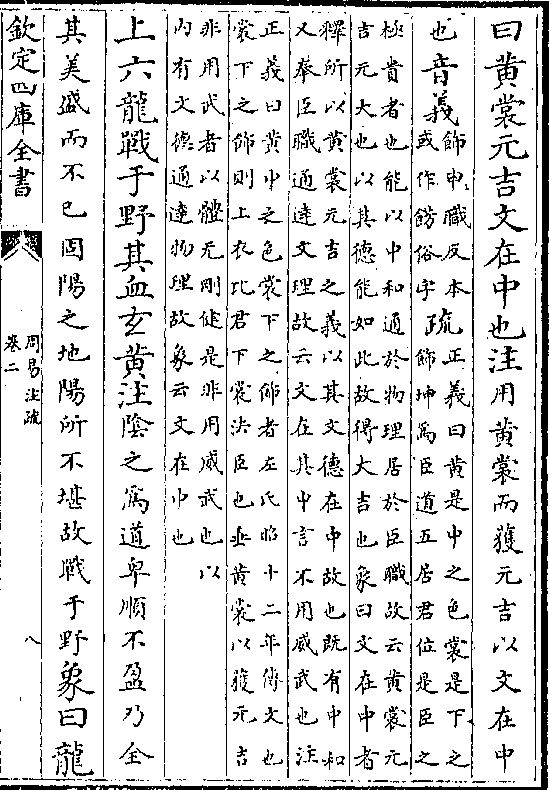 曰黄裳元吉文在中也注用黄裳而獲元吉以文在中
也音義飾申職反本
或作餝俗字疏正義曰黄是中之色裳是下之
飾坤爲臣道五居君位是臣之
極貴者也能以中和通於物理居於臣職故云黄裳元
吉元大也以其德能如此故得大吉也象曰文在中者
釋所以黄裳元吉之義以其文德在中故也既有中和
又奉臣職通達文理故云文在其中言不用威武也注
正義曰黄中之色裳下之飾者左氏昭十二年傳文也
裳下之飾則上衣比君下裳法臣也垂黄裳以獲元吉
非用武者以體无剛健是非用威武也以
内有文德通達物理故象云文在中也
上六龍戰于野其血玄黄注陰之爲道卑順不盈乃全
其美盛而不已固陽之地陽所不堪故戰于野象曰龍
欽定四庫全書
周易注疏
卷二
八